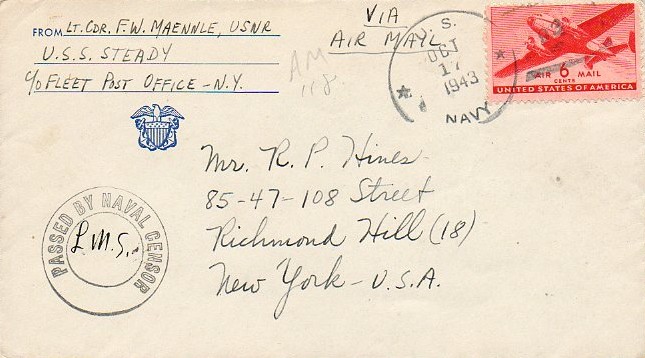 FROM LT. CDR. F.W. MAENNLE, USNR
U.S.S. STEADY
C/O FLEET POST OFFICE - N.Y.
VIA
AIR MAIL
AM
118
S.
OCT
17
1943
NAVY
AIR 6 MAIL
CENTS
UNITED STATES OF AMERICA
Mr. R. P. Hines
85-47-108 Street
Richmond Hill (18)
New York - U.S.A.
PASSED BY NAVAL CENSOR
L.M.S.